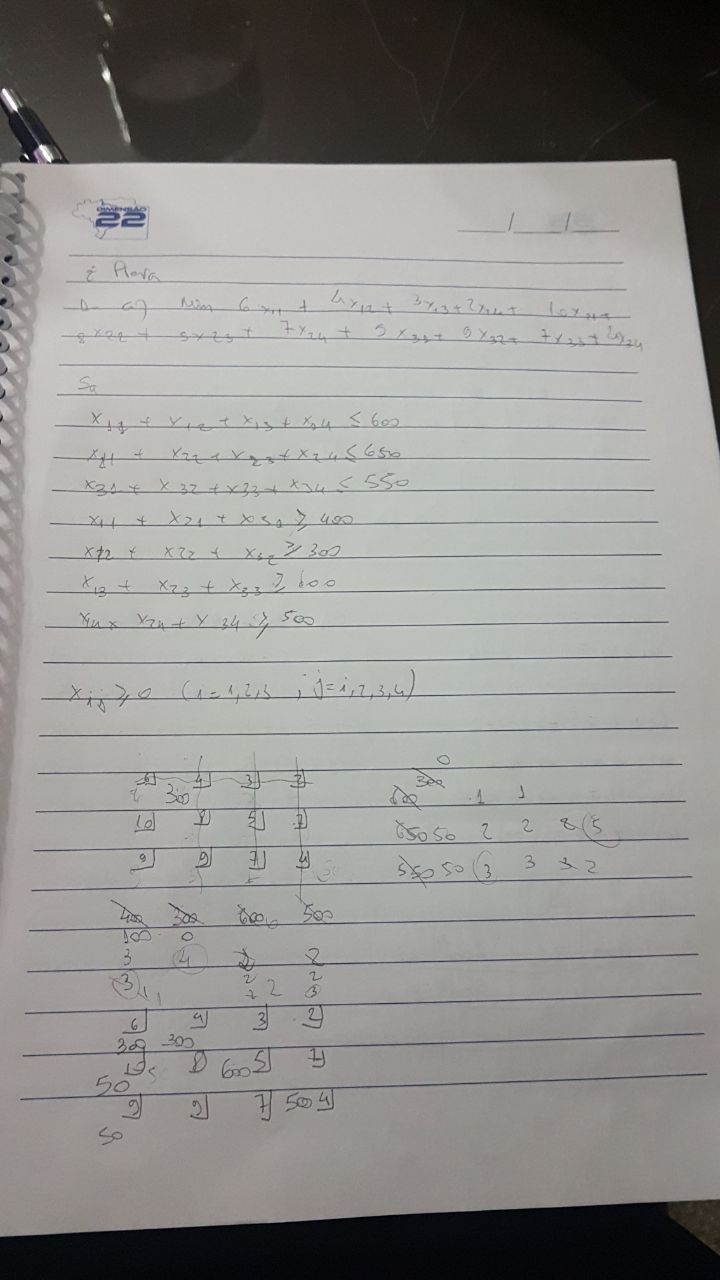 DIMENSÃO
22
/ /
Prova
a) Min 6x11 + 4x12 + 3x13 + 2x14 + 10x21+
8x22 + 5x23 + 7x24 + 9x31 + 9x32+ 7x33 + 4x34
Sa
x11 + x12 + x13 + x14 ≤ 600
x21 + x22 + x23 + x24 ≤ 650
x31 + x32 + x33 + x34 ≤ 550
x11 + x21 + x31 ≥ 400
x12 + x22 + x32 ≥ 300
x13 + x23 + x33 ≥ 600
x14 + x24 + x34 ≥ 500
xij ≥ 0 (i=1,2,3 ; j=1,2,3,4)
0
6 4 3 2 300
300 600 1 1
10 8 5 7 650 50 2 2 5
9 9 7 4 550 50 3 3 3 2
400 300 600 500
100 0
3 4 2 2
3 2 2
4 2
6 4 3 2
300 300
10 8 600 5 7
50
9 9 7 500 4
50